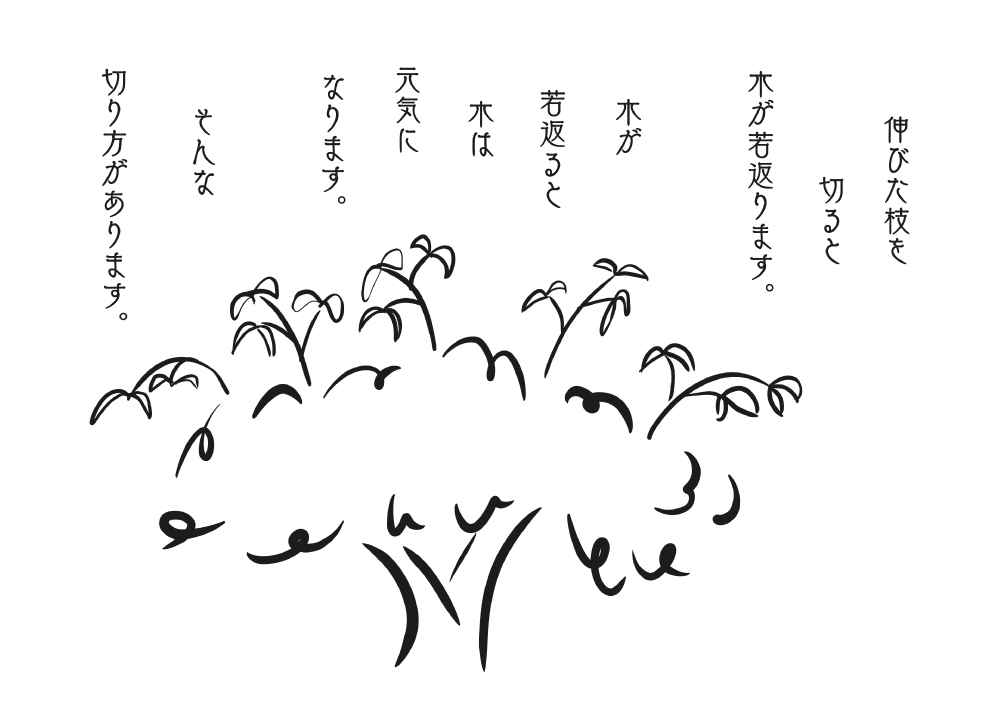 伸びた枝を
切ると
木が若返ります。
木が
若返ると
木は
元気に
なります。
そんな
切り方があります。